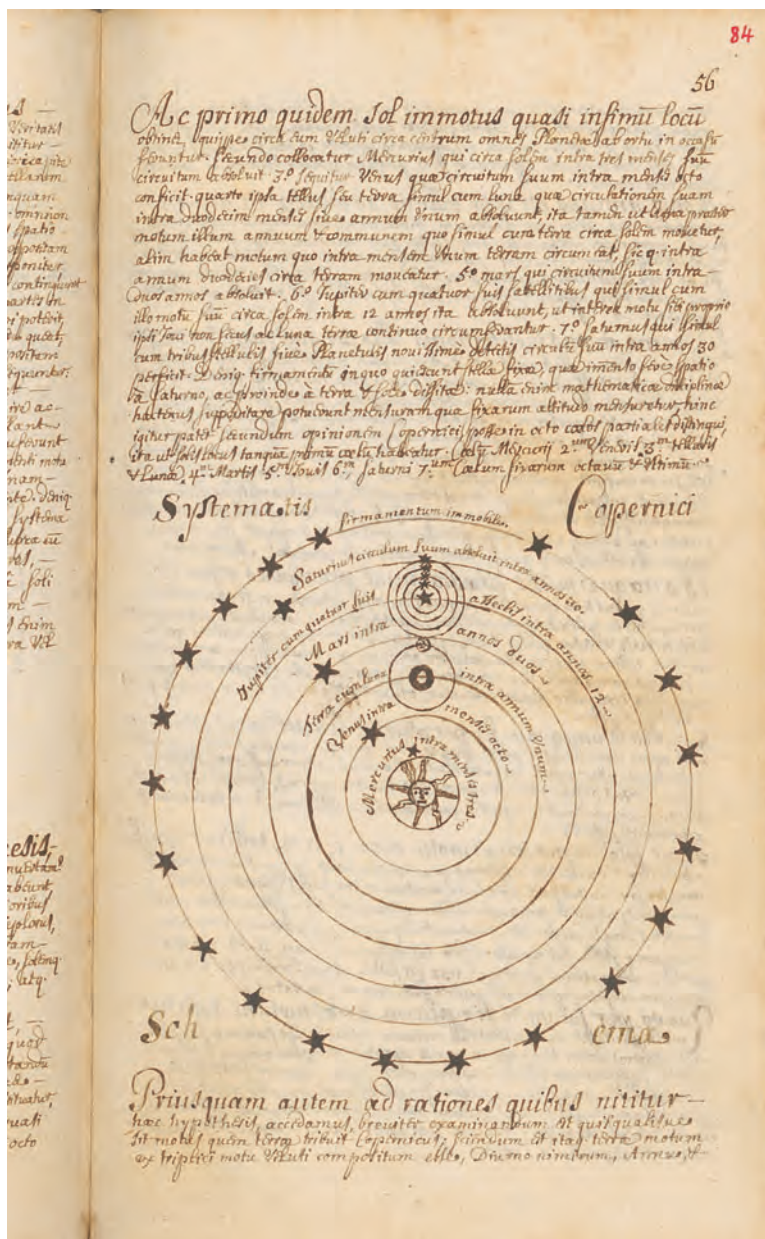 84
56
Ac primo quidem Sol immotus quasi infimū locū
obtinet, quippe circa eum veluti circa centrum omnes Planetæ ab ortu in occasū
feruntur. Secundo collocatur Mercurius qui circa solem intra tres menses suū
circuitum absoluit. 3.º sequitur Venus quæ circuitum suum intra menses octo
conficit. quarto ipsa tellus seu terra simul cum luna quæ circulationem suam
intra duodecim menses siue annum vnum absoluunt, ita tamen ut luna præter
motum illum annuum & communem quo simul cum terra circa solem mouetur,
alium habeat motum quo intra mensem vnum terram circumeat, sicq. intra
annum duodecies circa terram moueatur. 5.º mars qui circuitum suum intra
duos annos absoluit. 6.º Iupiter cum quatuor suis satellitibus qui simul cum
illo motū suū circa solem intra 12 annos ita absoluunt, ut interea motu sibi proprio
ipsi Ioui non secus ac luna terræ continuo circumferantur. 7.º Saturnus qui simul
cum tribus stellulis siue Planetulis nouissime detectis circulū suū intra annos 30
perficit. Deniq. firmamentū in quo quiescunt stellæ fixæ, quæ immēso ferè spatio
à Saturno, ac proinde à terra & sole dissitæ: nulla enim mathematicæ disciplinæ
hactenus suppeditare potuerunt mensuram qua fixarum altitudo mensuretur, hinc
igitur patet secundum opinionem Copernici, posse in octo cœlos partiales distingui,
ita ut solis locus tanquā primū cœlū habeatur. Cœlū Mercurij 2.um Veneris 3.m telluris
& Lunæ, 4.m Martis 5.m Iouis 6.m Saturni 7.um Cœlum fixarum octauū & vltimū.
Systematis Copernici
firmamentum immobile
Saturnus circulum suum absoluit intra annos 30.
Jupiter cum quatuor suis asseclis intra annos 12
Mars intra annos duos
Terra cum luna intra annum vnum
Venus intra menses octo
Mercurius intra menses tres
Schema
Priusquam autem ad rationes quibus nititur
hæc hypothesis, accedamus, breuiter examinandum est quis qualisue
sit motus quem terræ tribuit Copernicus; sciendum est itaq. terræ motum
ex triplici motu veluti compositum esse, Diurno nimirum, Annuo, &